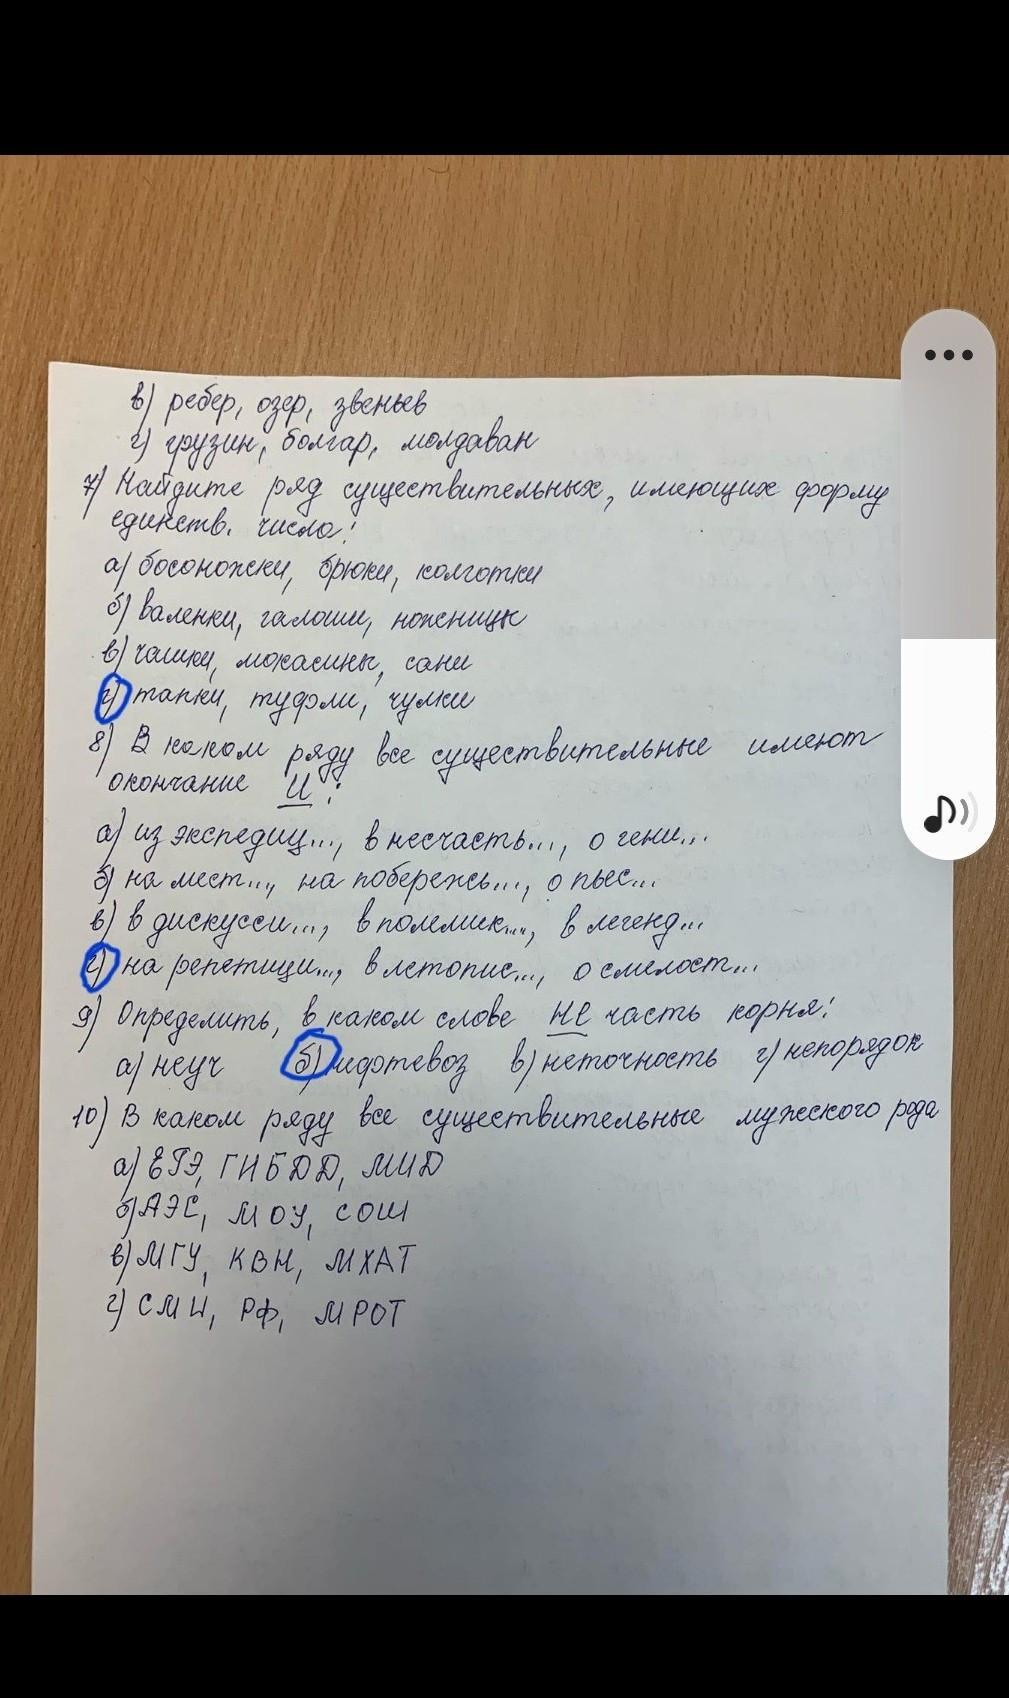 в) ребер, озер, звеньев
г) грузин, болгар, молдаван
7) Найдите ряд существительных, имеющих форму
единств. числа:
а) босоножки, брюки, колготки
б) валенки, галоши, ножницы
в) чашки, мокасины, сани
г) тапки, туфли, чулки
8) В каком ряду все существительные имеют
окончание и:
а) из экспедиц..., в несчасть..., о гени...
б) на мест..., на побережь..., о пьес...
в) в дискусси..., в полемик..., в легенд...
г) на репетици..., в летопис..., о смелост...
9) Определить, в каком слове НЕ часть корня:
а) неуч б) нефтевоз в) неточность г) непорядок
10) В каком ряду все существительные мужского рода
а) ЕГЭ, ГИБДД, МИД
б) АЭС, МОУ, СОШ
в) МГУ, КВН, МХАТ
г) СМИ, РФ, МРОТ